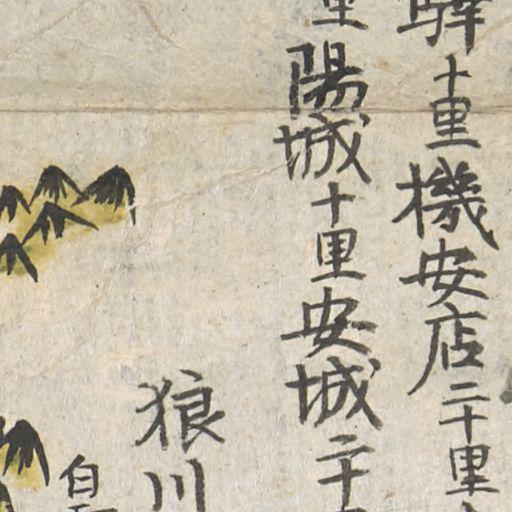 驛十里機安店二十里
里陽城十里安城二十
狼川
自